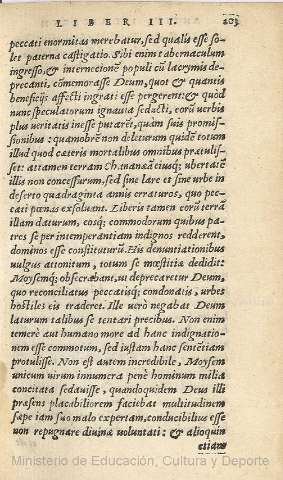 LIBER III. 203
peccati enormitas merebatur, sed qualis esse so-
let paterna castigatio. Sibi enim tabernaculum
ingresso, & internecionẽ populi cũ lacrymis de-
precanti, cõmemorasse Deum, quot & quantis
beneficijs affecti ingrati esse pergerent: & quòd
nunc speculatorum ignauia seducti, eorũ verbis
plus veritatis inesse putarẽt, quàm suis promis-
sionibus: quamobrẽ non deleturum quidẽ totum
illud quod cæteris mortalibus omnibus prætulis-
set: attamen terram Chananæã eiusq; vbertatẽ
illis non concessurum, sed sine lare et sine vrbe in
deserto quadraginta annis erraturos, quo pec-
cati pœnas exsoluant. Liberis tamen eorũ terrã
illam daturum, eosq; commodorum quibus pa-
tres se per intemperantiam indignos redderent,
dominos esse constituturũ. His denuntiationibus
vulgus attonitum, totum se mœstitia dedidit
Moysemq; obsecrabat, vt deprecaretur Deum,
quo reconciliatus peccatisq; condonatis, vrbes
hostiles eis traderet. Ille verò negabat Deum
laturum talibus se tentari precibus. Non enim
temerè aut humano more ad hanc indignatio-
nem esse commotum, sed iustam hanc sentẽtiam
protulisse. Non est autem incredibile, Moysem
vnicum virum innumera penè hominum milia
concitata sedauisse, quandoquidem Deus illi
præsens placabiliorem faciebat multitudinem
sæpe iam suo malo expertam, conducibilius esse
non repugnare diuinæ voluntati: & alioquin
etiam
Ministerio de Educación, Cultura y Deporte